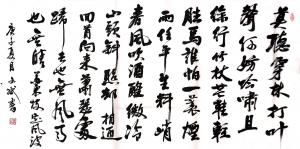 莫聽穿林打葉
聲何妨吟嘯且
徐行竹杖芒鞋輕
勝馬誰怕一蓑煙
雨任平生料峭
春風吹酒醒微冷
山頭斜照却相迎
回首向來蕭瑟處
歸去也無風雨
也無晴
庚子夏月